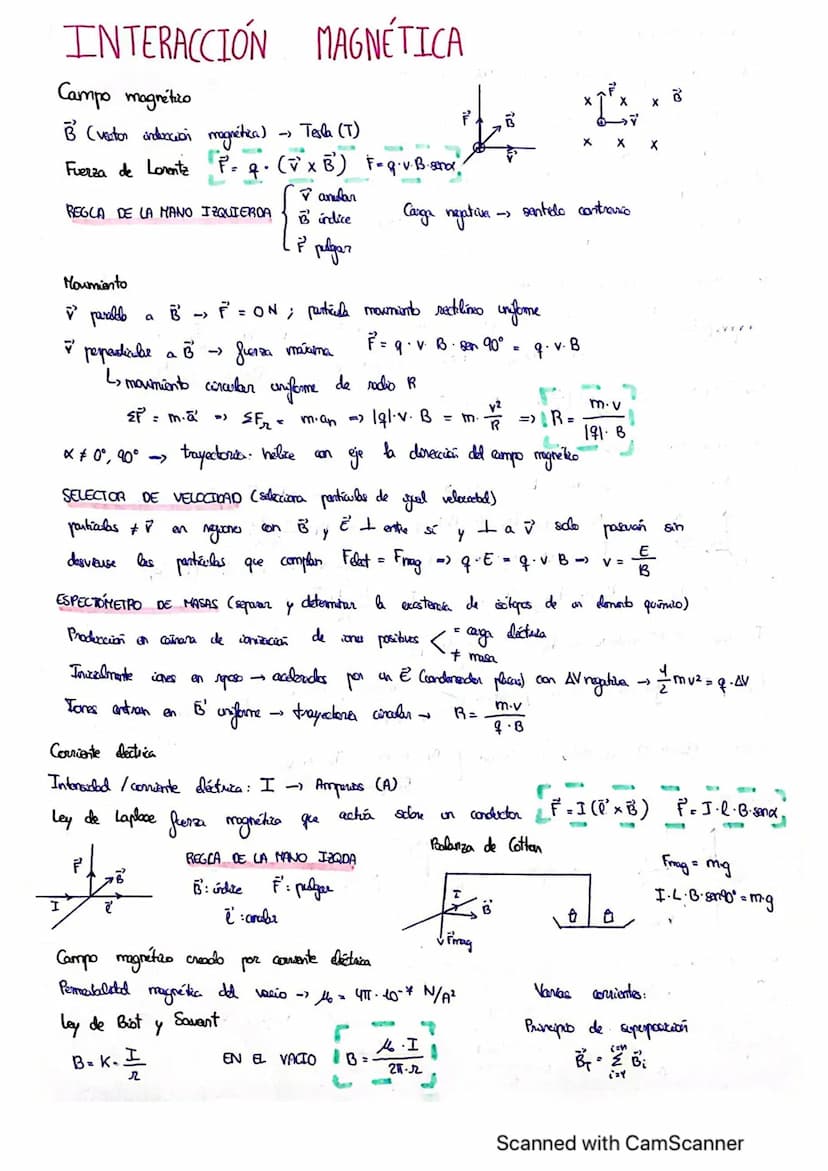 INTERACCIÓN MAGNÉTICA
Campo magnético
B⃗ (vector inducción magnética) → Tesla (T)
F⃗ B⃗ v⃗
x F⃗ x x B⃗
v⃗
x x x
Fuerza de Lorentz F⃗ = q · (v⃗ x B⃗) F = q·v·B·senα
REGLA DE LA MANO IZQUIERDA { v⃗ anular
B⃗ índice
F⃗ pulgar
Carga negativa → sentido contrario
Movimiento
v⃗ paralelo a B⃗ → F⃗ = 0N ; partícula movimiento rectilíneo uniforme
v⃗ perpendicular a B⃗ → fuerza máxima F⃗ = q · v · B · sen 90° = q · v · B
↳ movimiento circular uniforme de radio R
ΣF⃗ = m·a⃗ => ΣFn = m·an => |q|·v·B = m · v²/R => R = m·v / |q|·B
α ≠ 0°, 90° → trayectoria: hélice con eje la dirección del campo magnético
SELECTOR DE VELOCIDAD (selecciona partículas de igual velocidad)
partículas ≠ v⃗ en regiones con B⃗ y E⃗ ⊥ entre sí y ⊥ a v⃗ solo pasarán sin
desviarse las partículas que cumplan Felect = Fmag => q·E = q·v·B → v = E/B
ESPECTÓMETRO DE MASAS (separar y determinar la existencia de isótopos de un elemento químico)
Producción en cámara de ionización de iones positivos < = carga eléctrica
≠ masa
Inicialmente iones en reposo → acelerados por un E⃗ (condensador placas) con ΔV negativa → 1/2 mv² = q·ΔV
Iones entran en B⃗ uniforme → trayectoria circular → R = m·v / q·B
Corriente eléctrica
Intensidad / corriente eléctrica: I → Amperios (A)
Ley de Laplace fuerza magnética que actúa sobre un conductor F⃗ = I (l⃗ x B⃗) F⃗ = I·l·B·senα
F⃗ B⃗ I l⃗
REGLA DE LA MANO IZQDA
B⃗: índice F⃗: pulgar
l⃗: anular
Balanza de Cotton
I B⃗
F⃗mag
Fmag = mg
I·L·B·sen90° = m·g
Campo magnético creado por corriente eléctrica
Permeabilidad magnética del vacío → μ₀ = 4π·10⁻⁷ N/A²
Ley de Biot y Savart
B = K · I/r
EN EL VACIO B = μ₀·I / 2π·r
Varias corrientes:
Principio de superposición
B⃗T = Σ B⃗i
i=n
i=1
Scanned with CamScanner